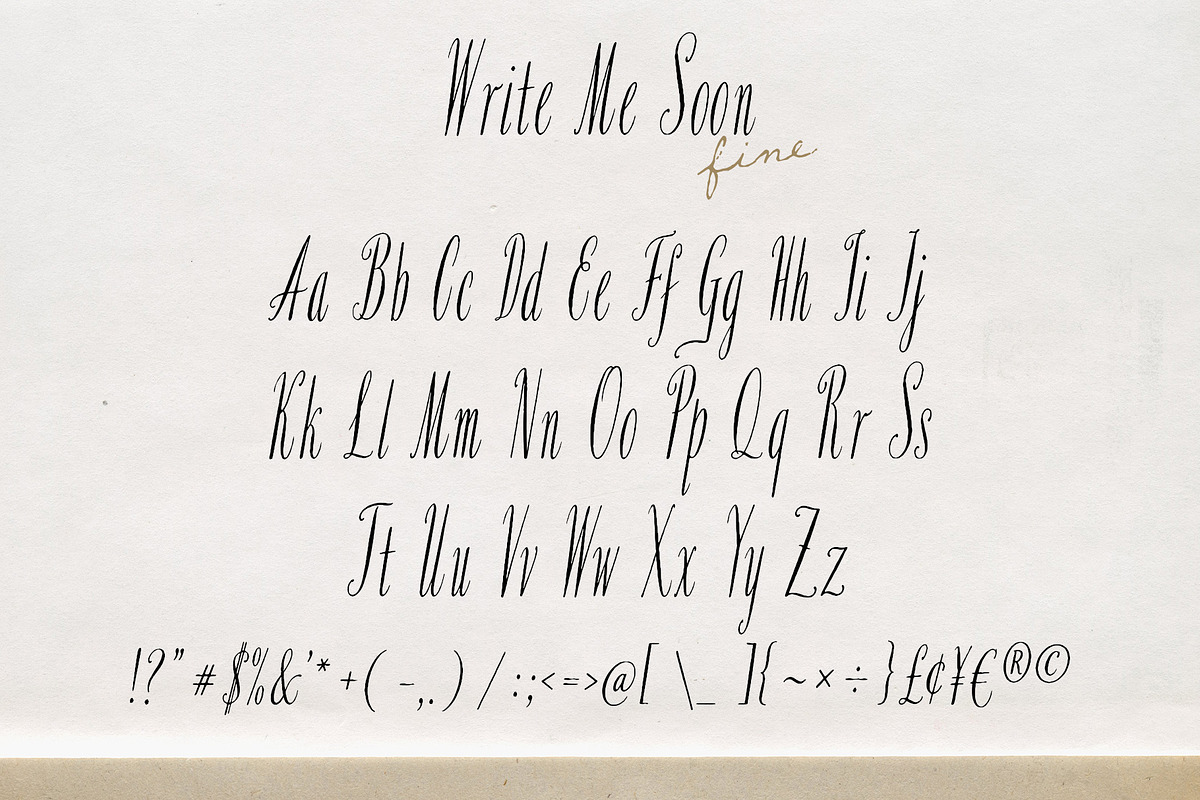 Write Me Soon
fine
Aa Bb Cc Dd Ee Ff Gg Hh Ii Jj
Kk Ll Mm Nn Oo Pp Qq Rr Ss
Tt Uu Vv Ww Xx Yy Zz
!?" # $%&'*+( -,.) / :;<=>@[ \_ ]{ ~×÷ }£¢¥€®©